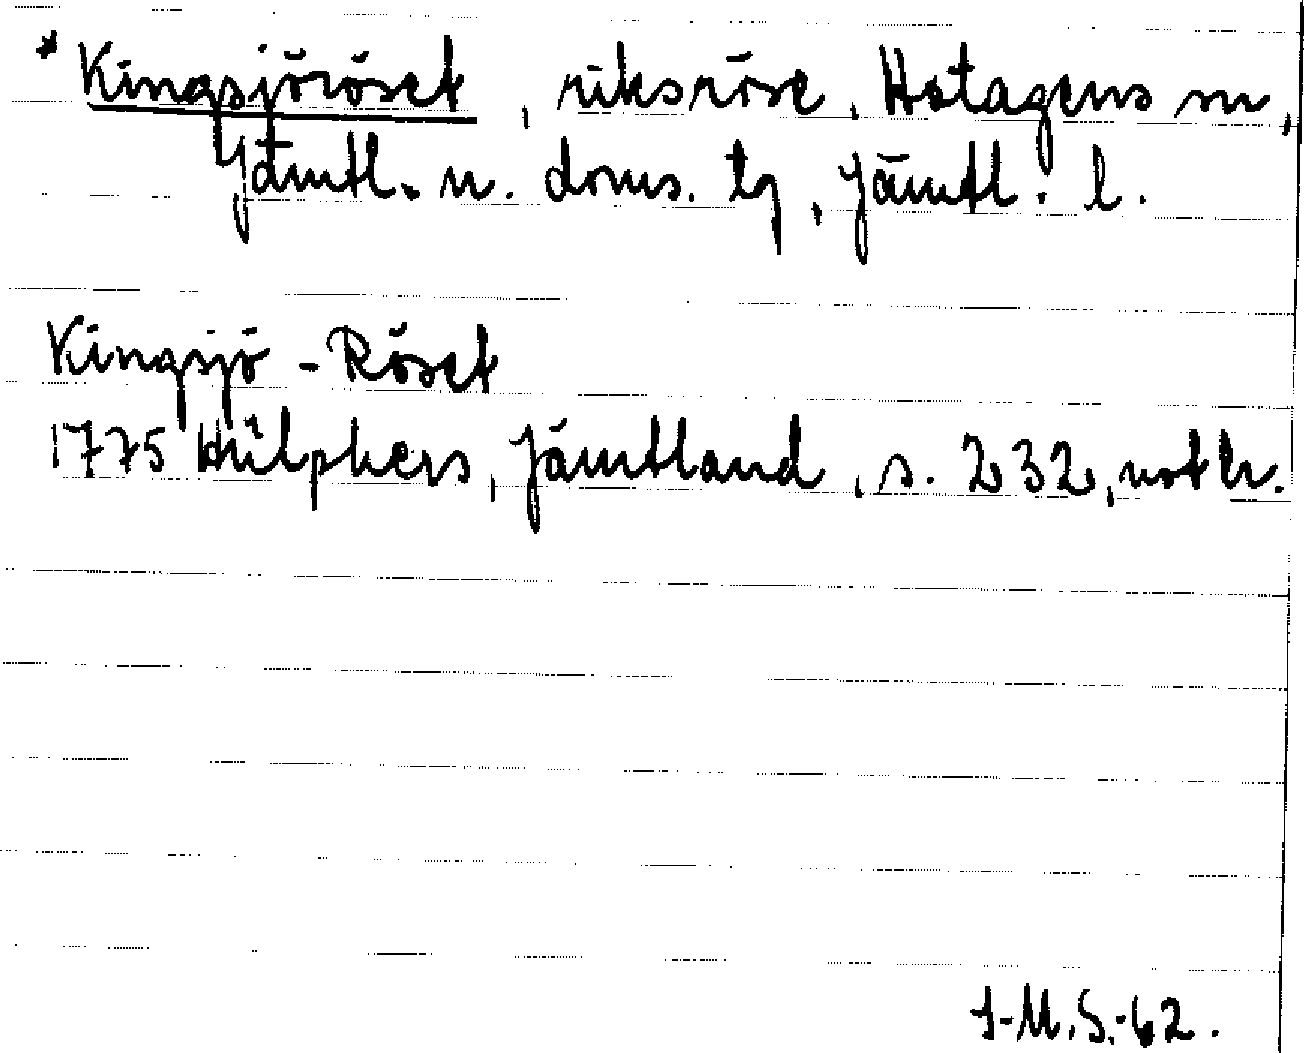 * Kingsjöröset, riksröse, Hotagens sn,
Jämtl. n. doms. tg, Jämtl. l.
Kingsjö-Röset
1775 Hülphers, Jämtland, s. 232, not h.
J-M.S.-62.